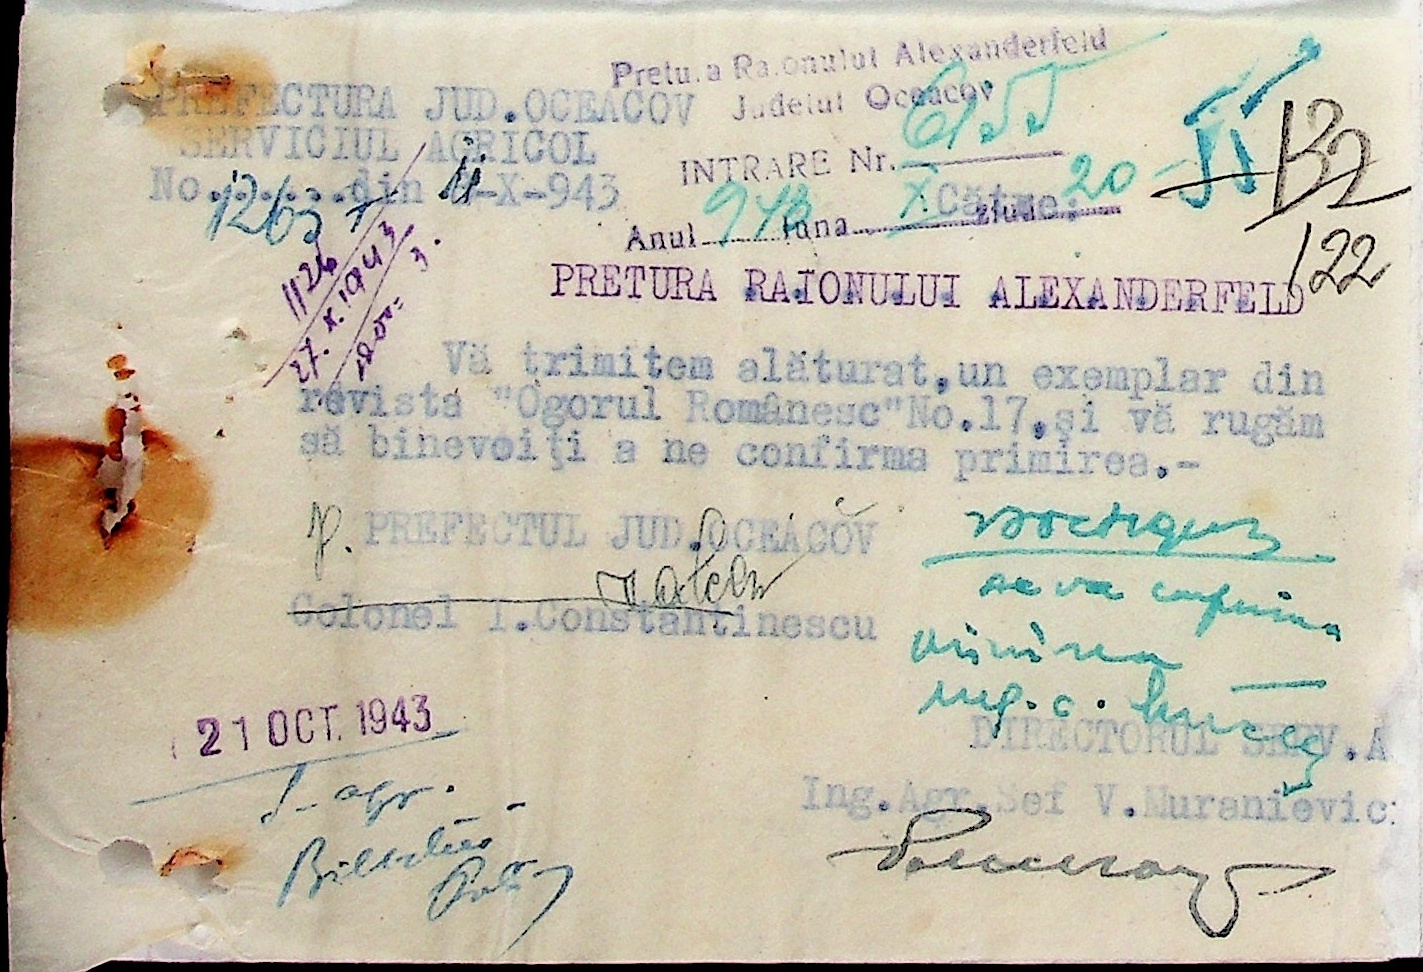 Pretura Raionului Alexanderfeld
Judetul Oceacov
INTRARE Nr. 6155
Anul 943 luna X ziua 20
PREFECTURA JUD.OCEACOV
SERVICIUL AGRICOL
No. 1263 din 11-X-943
Către:
132
122
1126
27.X.1943
PRETURA RAIONULUI ALEXANDERFELD
Vă trimitem alăturat,un exemplar din
revista "Ogorul Românesc"No.17,și vă rugăm
să binevoiți a ne confirma primirea.-
p. PREFECTUL JUD.OCEACOV
Colonel I.Constantinescu
se va confirma
primirea
21 OCT. 1943
S- agr.
DIRECTORUL SERV.A
Ing.Agr.Sef V.Muranievici